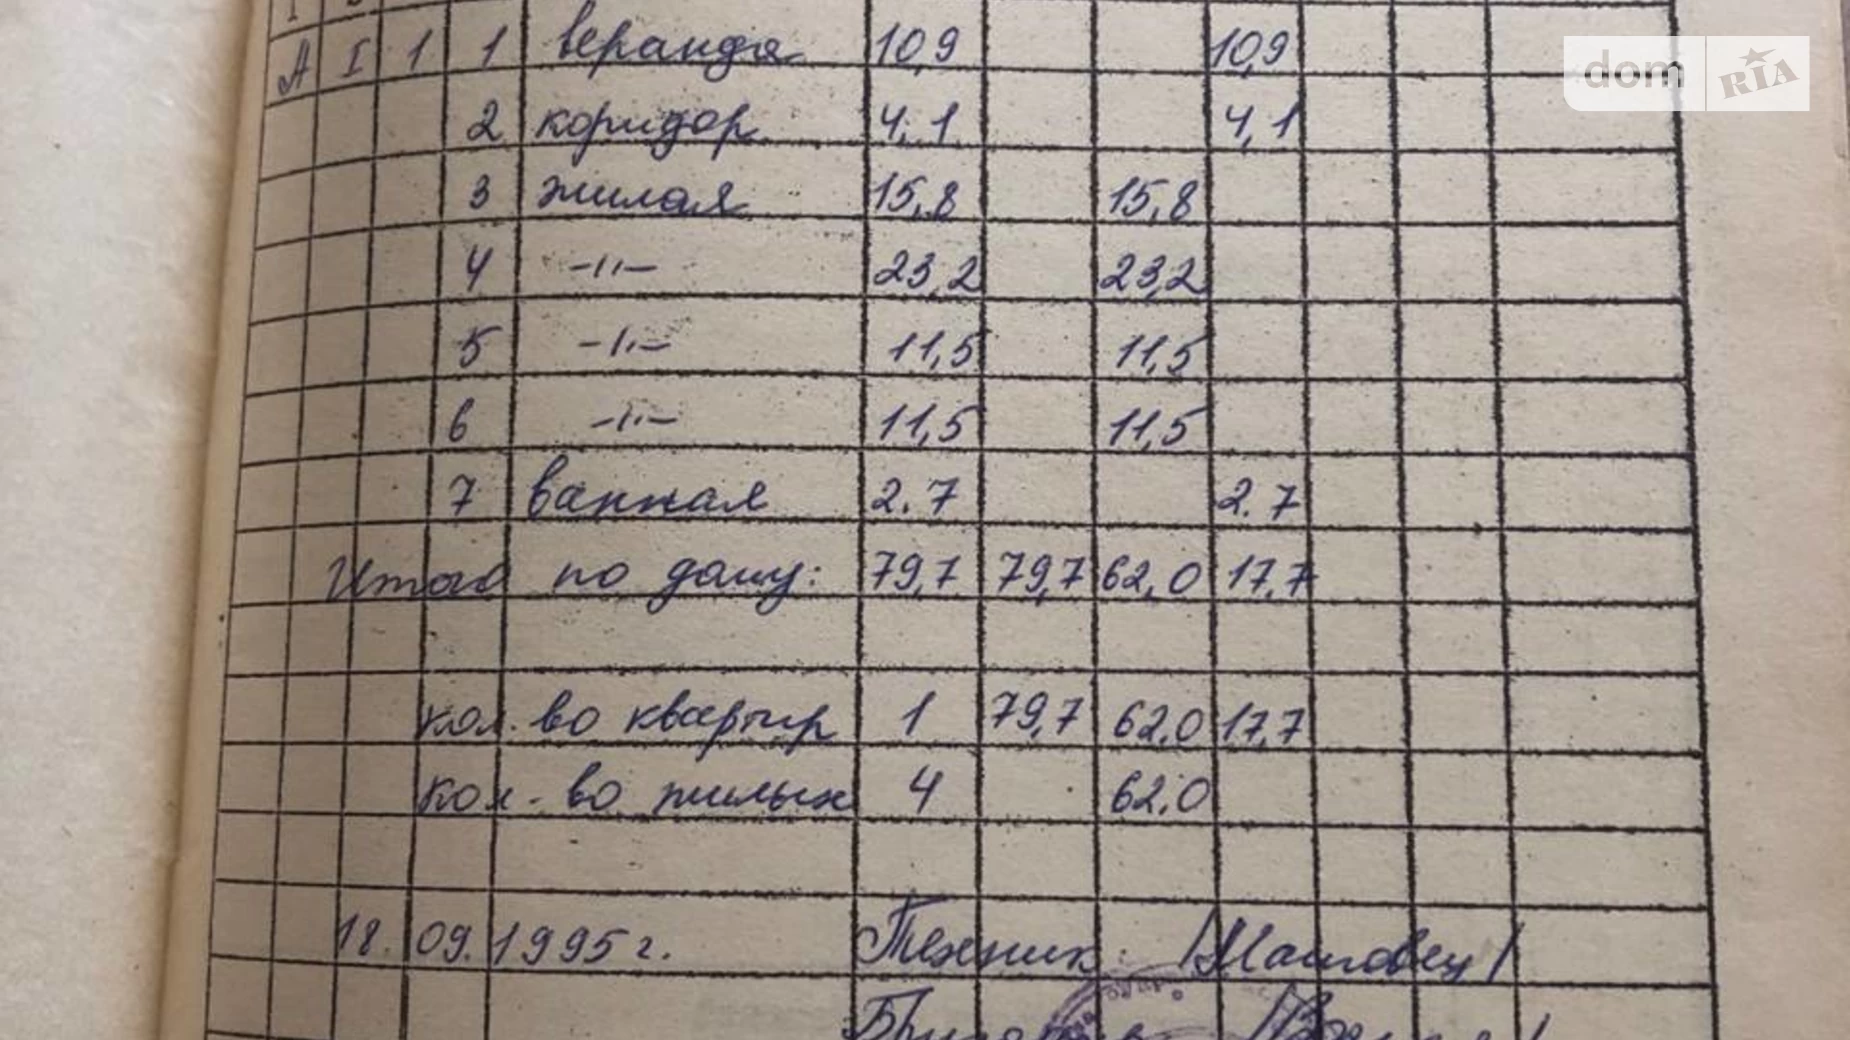 dom RIA
А I 1 1 веранда 10,9 10,9
2 коридор 4,1 4,1
3 жилая 15,8 15,8
4 -"- 23,2 23,2
5 -"- 11,5 11,5
6 -"- 11,5 11,5
7 ванная 2.7 2.7
Итого по дому: 79,7 79,7 62,0 17,7
кол. во квартир 1 79,7 62.0 17,7
кол-во жилых 4 62.0
18. 09. 1995 г. Техник: